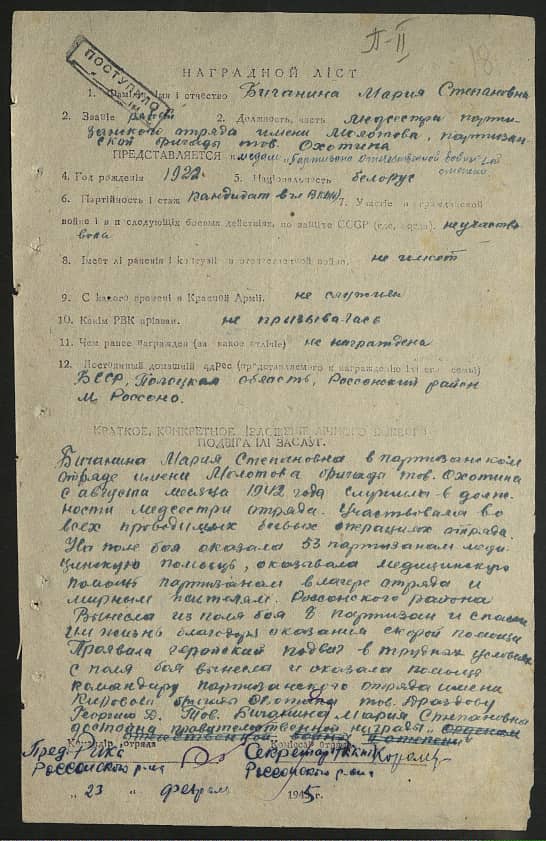 П-II
18.
ПОСТУПИЛО
НАГРАДНОЙ ЛІСТ
1. Фамилия імя і отчество Бичанина Мария Степановна
2. Званіе рядов. 2. Должность, часть Медсестра парти-
занского отряда имени Молотова, партизан-
ской бригады тов. Охотина
ПРЕДСТАВЛЯЕТСЯ к медали "Партизана Отечественной войны" I-й
степени
4. Год рождения 1922 5. Національность белорус
6. Партійность і стаж кандидат в чл ВКП(б) 7. Участіе в гражданской
войне і в последующіх боевых действіях по защите СССР (где, когда). не участво
вала
8. Імеет лі раненія і контузіі в отечественной войне. не имеет
9. С какого времені в Красной Армії. не служила
10. Какім РВК прізван. не призывалась
11. Чем ранее награжден (за какое отлічіе) не награждена
12. Постоянный домашній адрес (представляемого к награждению і его семьі)
БССР, Полоцкая область, Россонский район
м. Россоно.
КРАТКОЕ, КОНКРЕТНОЕ ІЗЛОЖЕНІЕ ЛІЧНОГО БОЕВОГО
ПОДВІГА ІЛІ ЗАСЛУГ.
Бичанина Мария Степановна в партизанском
отряде имени Молотова бригады тов. Охотина
с августа месяца 1942 года служила в долж-
ности медсестры отряда. Участвовала во
всех проводимых боевых операциях отряда.
На поле боя оказала 53 партизанам меди-
цинскую помощь, оказывала медицинскую
помощь партизанам в лагере отряда и
мирным жителям Россонского района
Вынесла из поля боя 8 партизан и спасла
им жизнь благодаря оказания скорой помощи
Проявила геройский подвиг в трудных условиях
с поля боя вынесла и оказала помощь
командиру партизанского отряда имени
Кирова бригады Охотина тов. Дроздову
Георгию Д. Тов. Бичанина Мария Степановна
достойна правительственной награды Орденом
Отечественной войны степени
Командір отряда Коміссар отряда
Пред. РИКа Секретарь РККП(б)Б
Россонского р-на Россонского р-на
" 23 " февраля 1945 г.